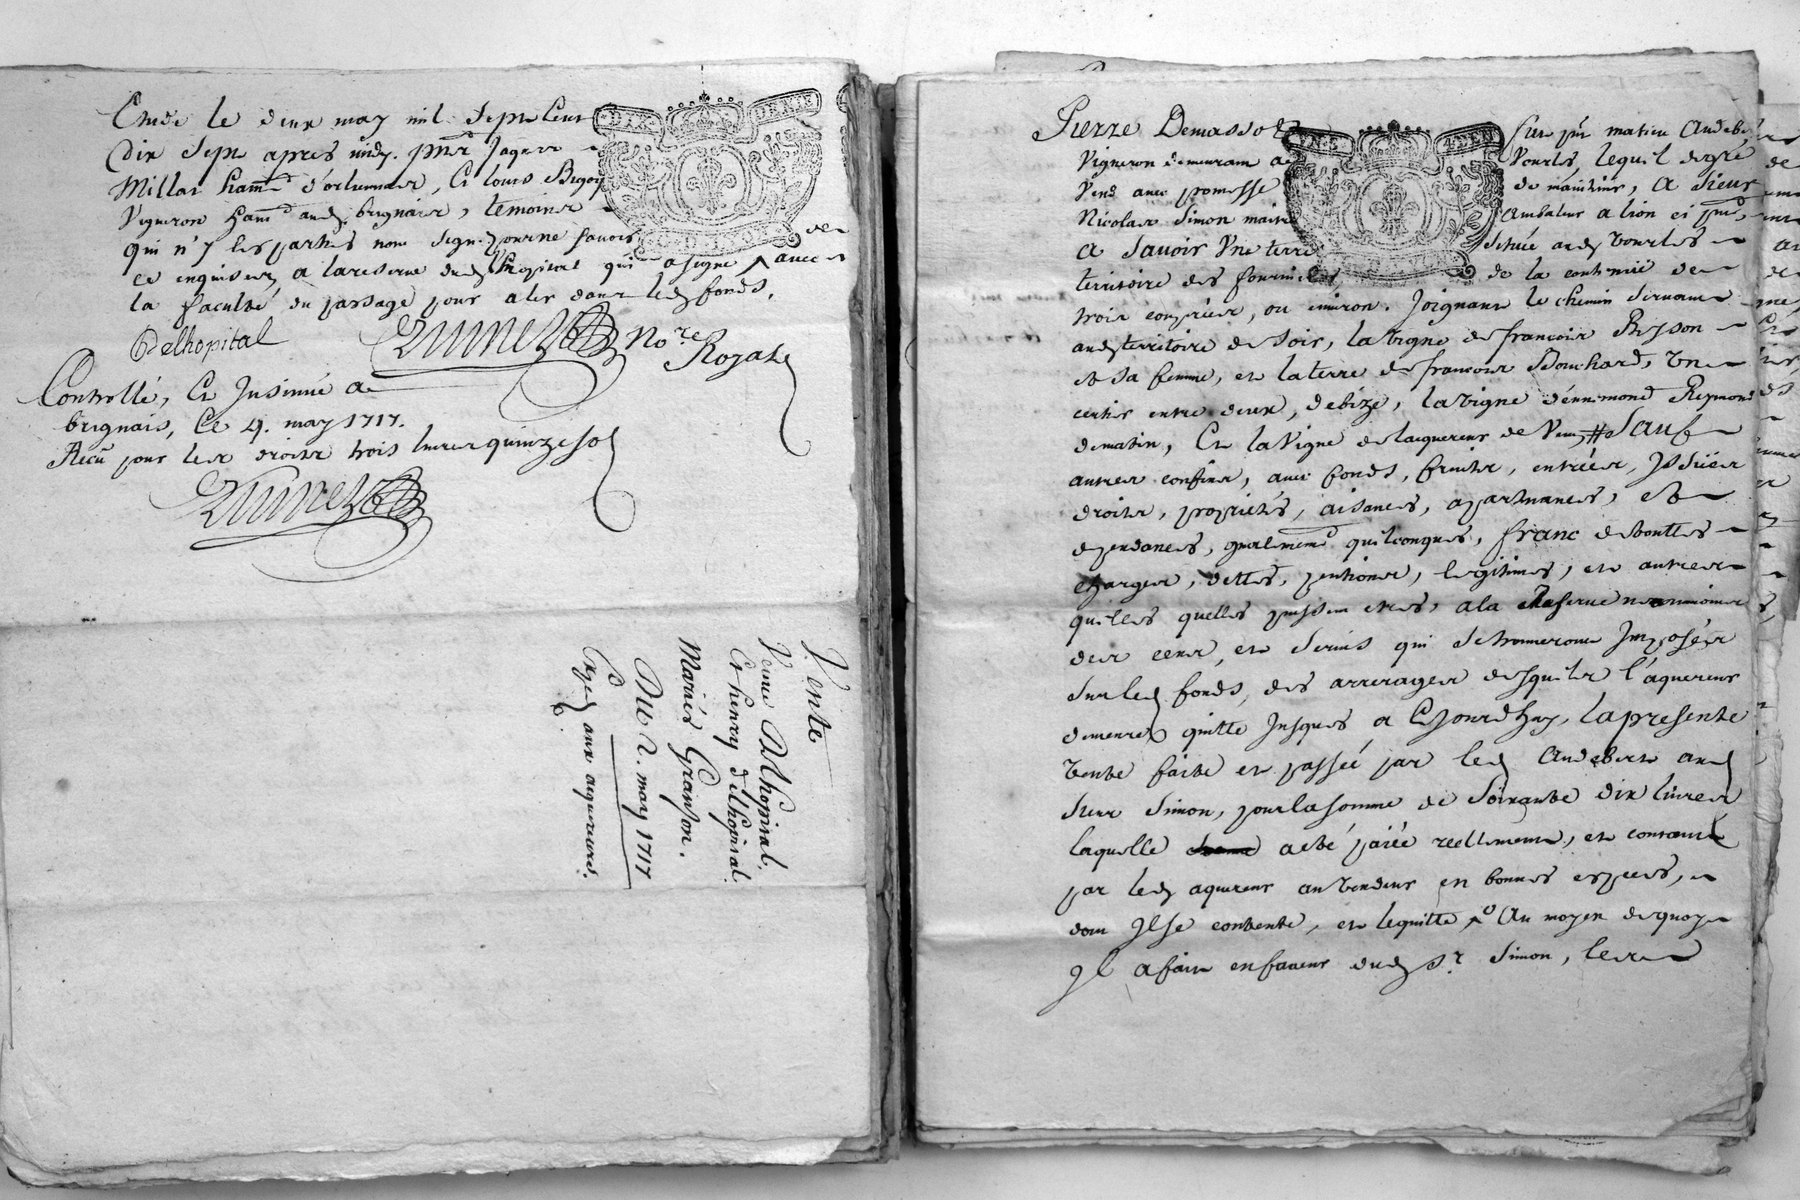 Etude le deux may mil sept cent
dix sept apres midy. pnt Jaques
Millat hant d'orlienas, Et louis
Vigneron hant aud. brignais, temoins
qui n'y les parties nont signé pour ne savoir de
ce enquis et, a la reserve dud. delhopital qui a signé avec
la faculté du passage pour aler dans led. fonds.
Delhopital
No.re Royal
Controllé, Et Insinué a
brignais, Ce 9. may 1717.
Reçu pour les droits trois livres quinze sol
Vente
Veuve delhopital
Et henry delhopital
Mariés Granjon.
Du 2. may 1717
Exped. aux aquereurs.
DIX DENIE
Pierre Demasso
Vigneron demeurant a
Vend avec promesse
Nicolas Simon maitre
A Savoir Une terre
territoire des
fut pnt matieu Audebert
Vourles, lequel de gré
de maintenir, A Sieur
a lion ci pnt,
Située aud. Vourles
de la contenüe de
trois couppées, ou environ. Joignant le chemin servant
aud. territoire de soir, la Vigne de françois
et sa femme, et la terre de françois Bouchard, Un
entre deux, de bize, la vigne d'ennemond Reymond
de matin, Et la Vigne de laquereur de Vent, Sauf
autres confins, avec fonds, fruits, entrées, Issües
droits, proprietés, aisances, apartenances, et
dependances, gnalement quelconques, franc de touttes
charges, dettes, pentions, legitimes, et autres
quelles quelles puissent etres, a la Reserve neanmoins
des cens, et servis qui se trouveront Imposés
sur led. fonds, des arrerages desquels l'aquereur
demeure quitte Jusques a Ce Jourdhuy, la presente
vente faite et passée par led. Audebert aud.
sieur Simon, pour la somme de Soixante dix livres
laquelle a eté paiée reellement, et contant
par led. aquereur au vendeur en bonnes especes,
dont Il se contente, et le quitte, Au moyen de quoy
Il a fait en faveur dud. Sr. Simon, les